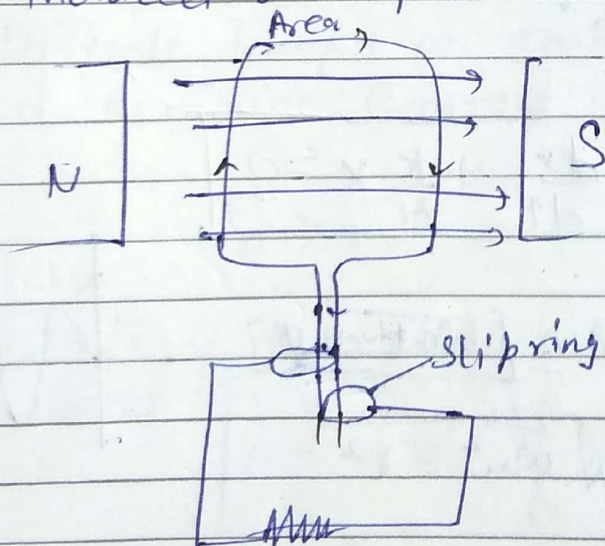 Area
N
S
Slip ring